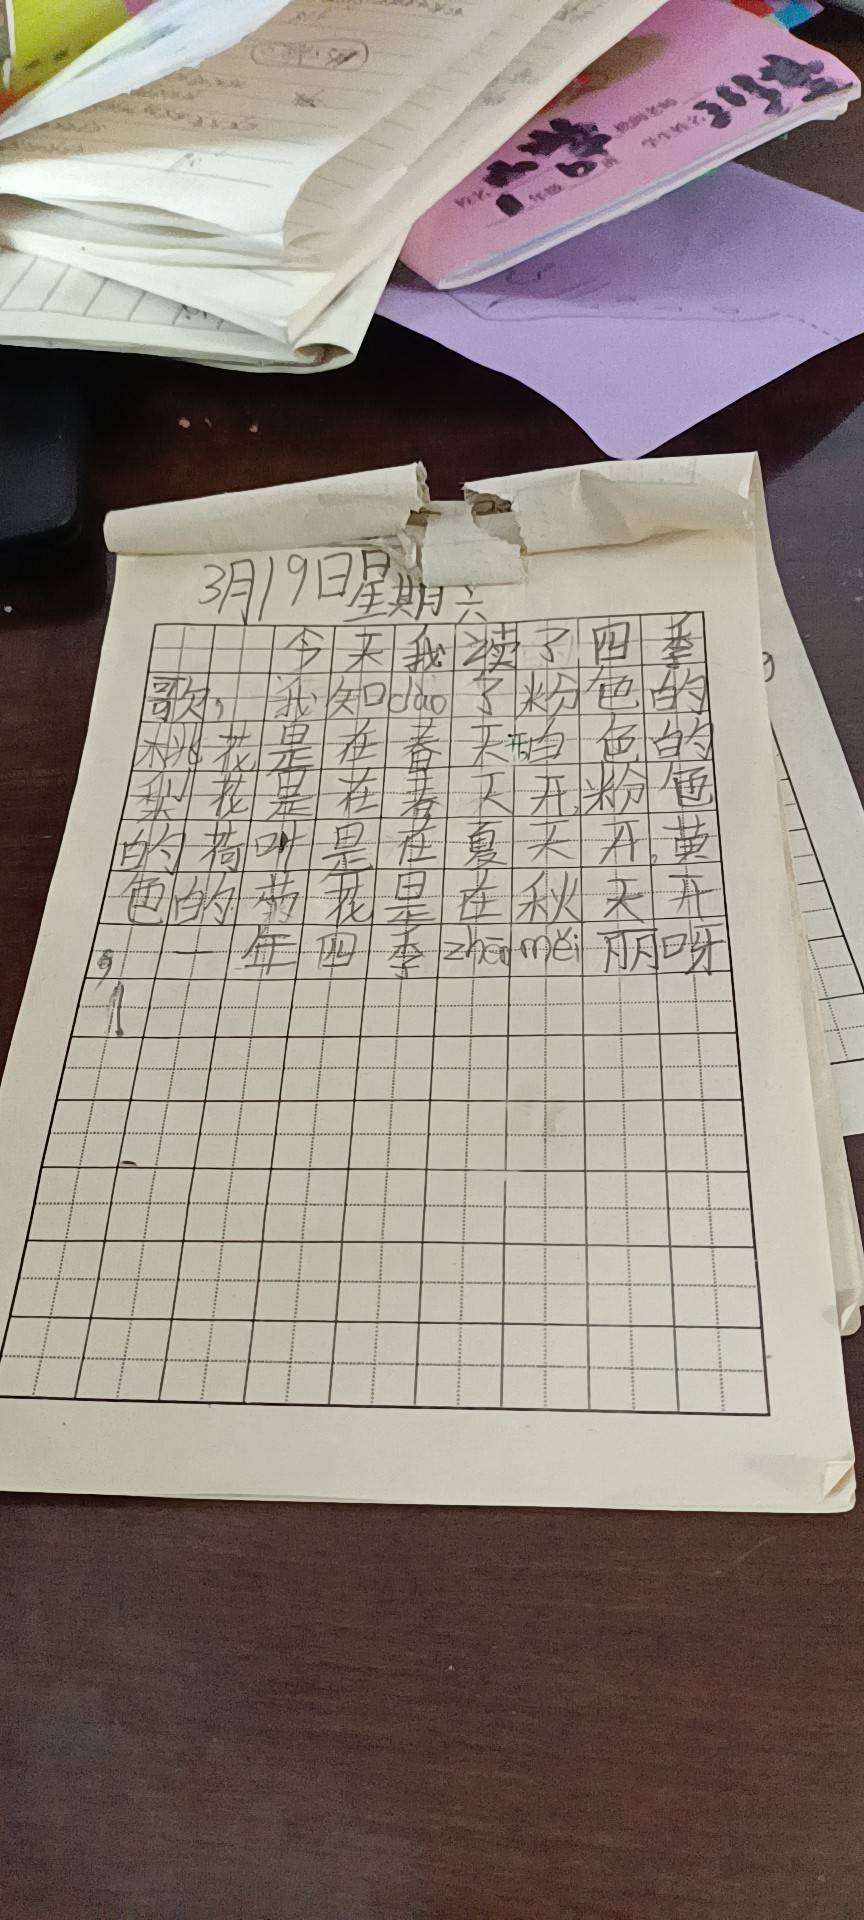 3月19日星期六
今天我读了四季
歌，我知dao了粉色的
桃花是在春天开,白色的
梨花是在春天开,粉色
的荷叶是在夏天开,黄
色的菊花是在秋天开
，一年四季zhēn měi丽呀
！